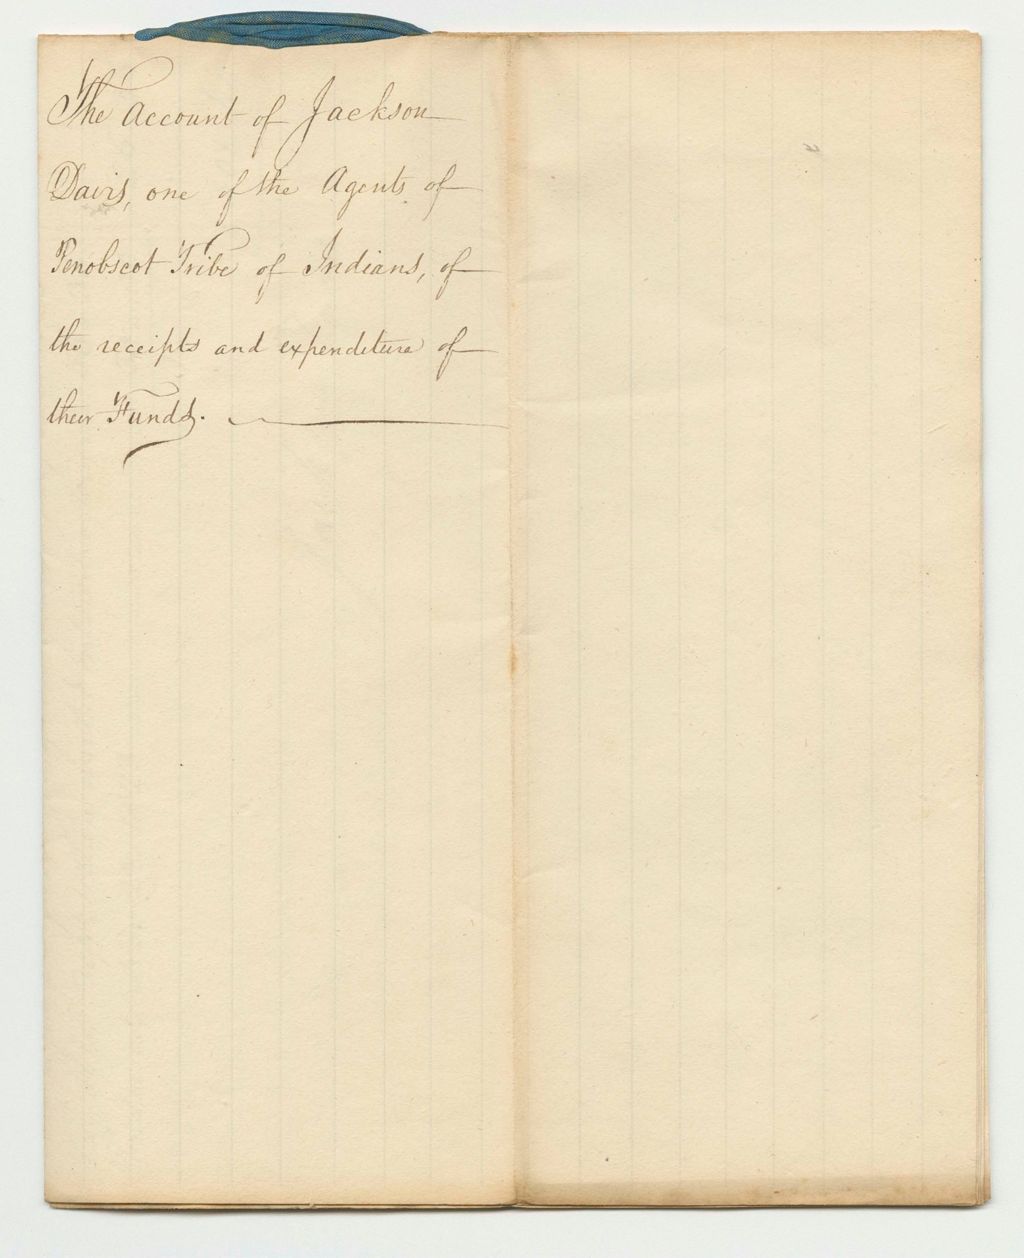 The Account of Jackson
Davis, one of the Agents of
Penobscot Tribe of Indians, of
the receipts and expenditure of
their Funds.